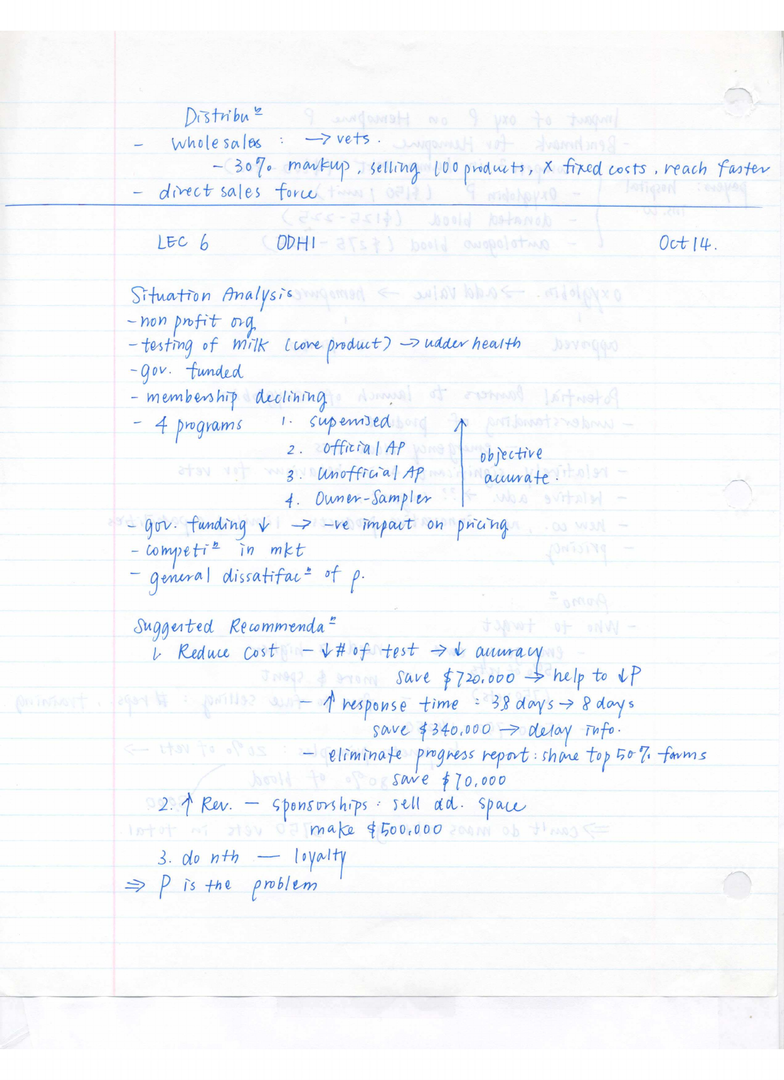 Distribuⁿ
- wholesales : → vets.
- 30% markup, selling 100 products, x fixed costs, reach faster
- direct sales force
LEC 6 ODHI Oct 14.
Situation Analysis
- non profit org
- testing of milk (core product) → udder health
- gov. funded
- membership declining
- 4 programs 1. supervised
2. official AP
3. unofficial AP
4. Owner-Sampler
objective
accurate.
- gov. funding ↓ → -ve impact on pricing
- competiⁿ in mkt
- general dissatifacⁿ of p.
Suggested Recommendaⁿ
1. Reduce cost - ↓# of test → ↓ accuracy
save $720,000 → help to ↓P
- ↑ response time : 3.8 days → 8 days
save $340,000 → delay info.
- eliminate progress report: share top 50% farms
save $70,000
2. ↑ Rev. - sponsorships : sell ad. space
make $500,000
3. do nth — loyalty
⇒ P is the problem